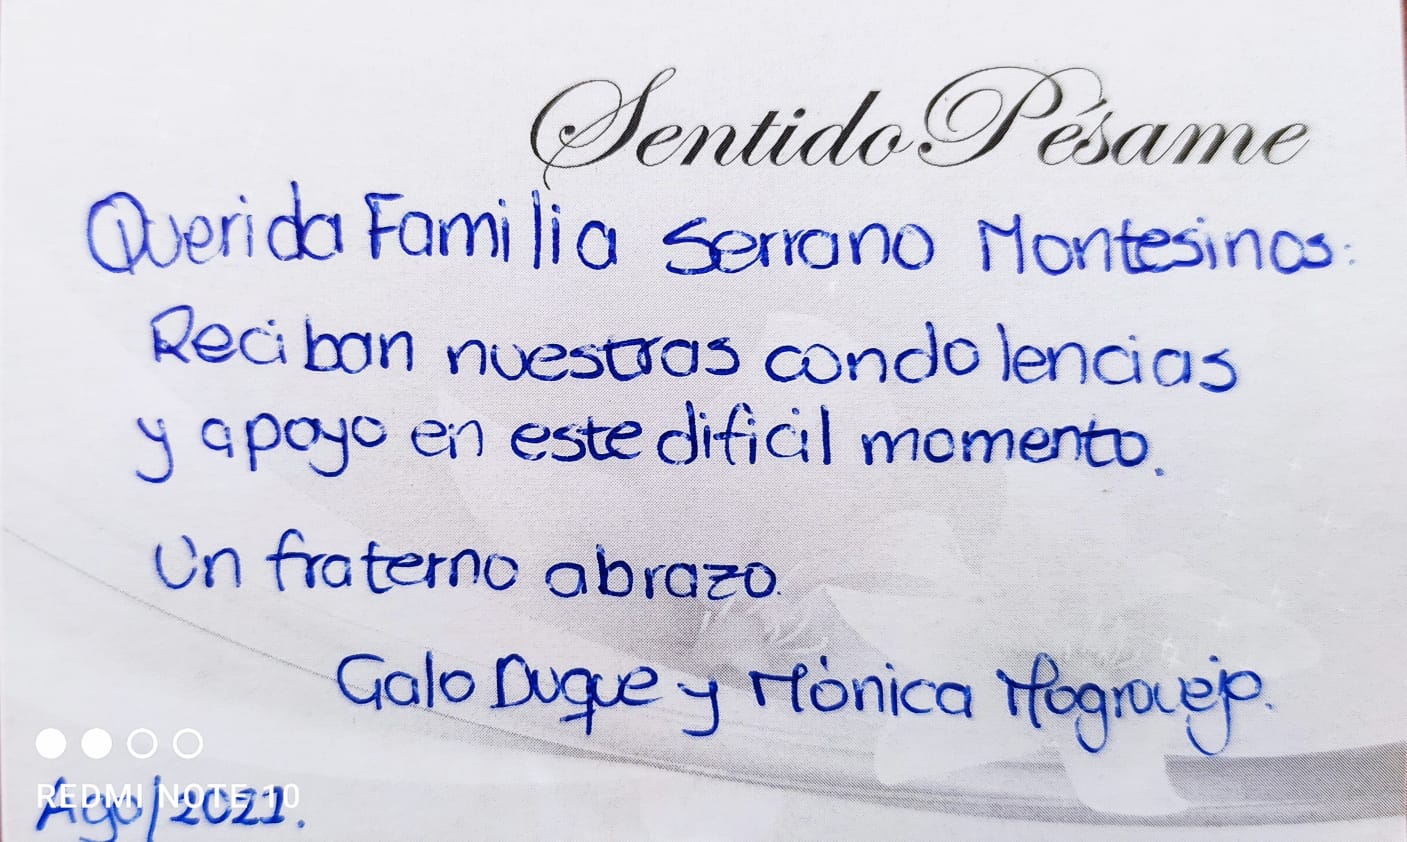 Sentido Pésame
Querida Familia Serrano Montesinos:
Reciban nuestras condolencias
y apoyo en este dificil momento.
Un fraterno abrazo.
Galo Duque y Mónica Mogrovejo.
REDMI NOTE 10
Ago/2021.